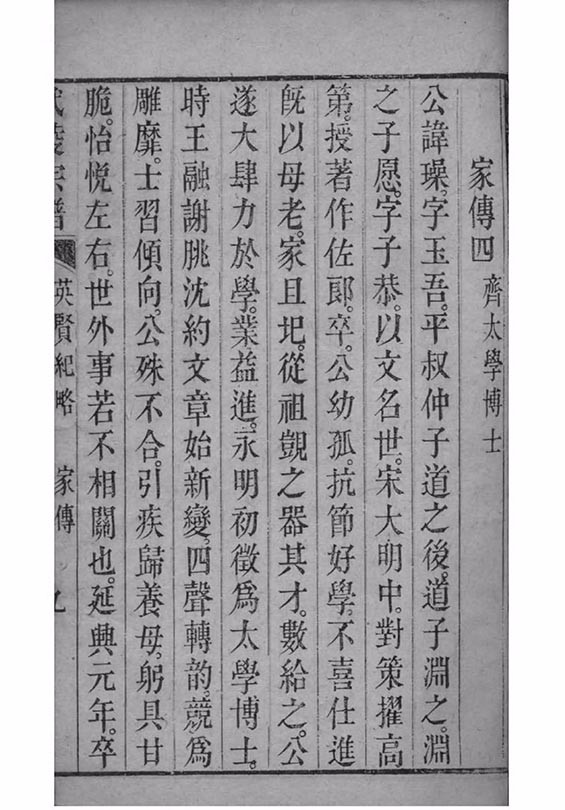 家傳四　齊太學博士
公諱璪。字玉吾。平叔仲子道之後。道子淵之。淵
之子愿。字子恭。以文名世。宋大明中。對策擢高
第。授著作佐郎。卒。公幼孤。抗節好學。不喜仕進
旣以母老。家且圯。從祖覬之器其才。數給之。公
遂大肆力於學。業益進。永明初徵爲太學博士。
時王融謝朓沈約文章始新變。四聲轉韵。競爲
雕靡。士習傾向。公殊不合。引疾歸養母。躬具甘
脆。怡悅左右。世外事若不相關也。延興元年。卒
宗譜　英賢紀略　家傳　九